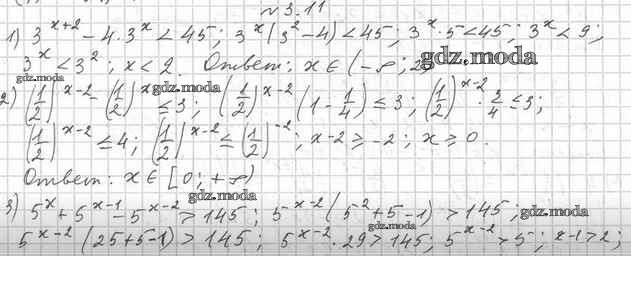 №3.11
1) 3^{x+2} - 4·3^x < 45; 3^x(3^2-4) < 45; 3^x·5 < 45; 3^x < 9;
3^x < 3^2; x < 2. Ответ: x ∈ (-∞; 2)
gdz.moda
gdz.moda
2) (1/2)^{x-2} - (1/2)^x ≤ 3; (1/2)^{x-2}(1-1/4) ≤ 3; (1/2)^{x-2}·3/4 ≤ 3;
gdz.moda
(1/2)^{x-2} ≤ 4; (1/2)^{x-2} ≤ (1/2)^{-2}; x-2 ≥ -2; x ≥ 0.
Ответ: x ∈ [0; +∞)
gdz.moda
3) 5^x + 5^{x-1} - 5^{x-2} > 145; 5^{x-2}(5^2+5-1) > 145;
gdz.moda
5^{x-2}(25+5-1) > 145; 5^{x-2}·29 > 145; 5^{x-2} > 5; x-1 > 2;
gdz.moda